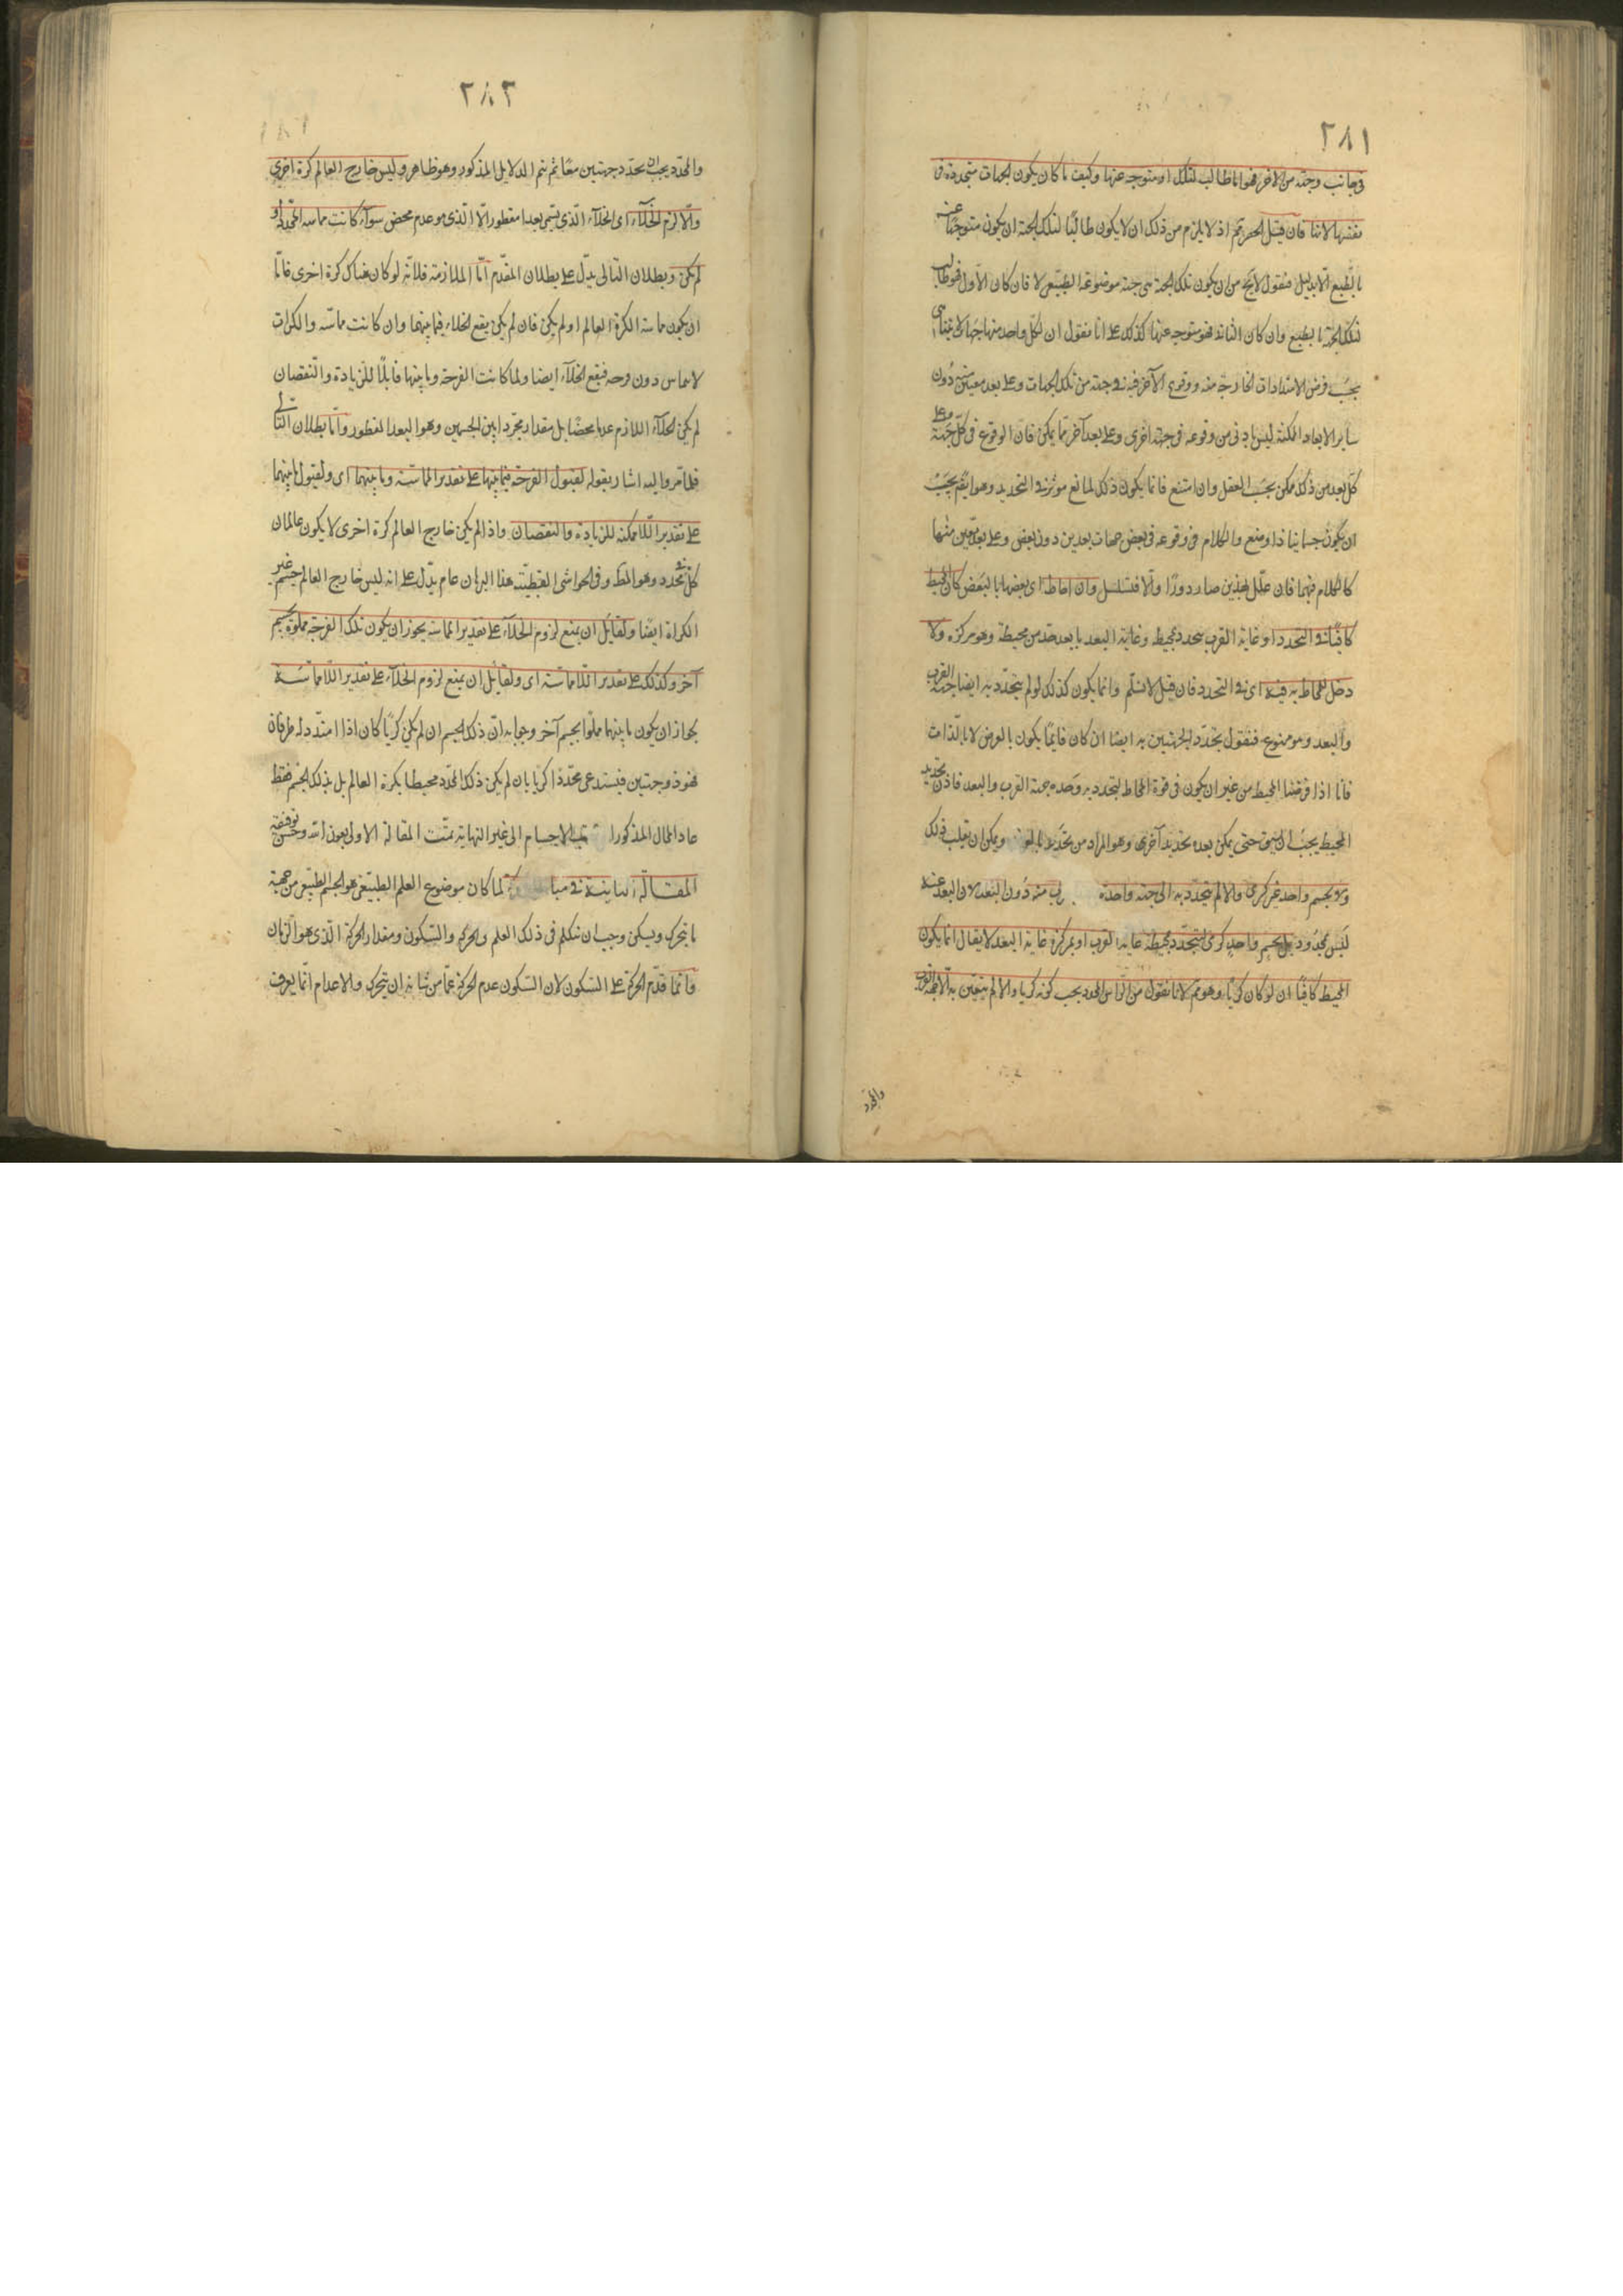 ٢٨١
في جانب وجهة من الآخر فهو اما طالب لتلك او متوجه عنها وكيف ما كان يكون الجهات متحددة قبل
نفسها لا بها فان قيل الحصر مم اذ لا يلزم من ذلك ان لا يكون طالبا لتلك الجهة ان يكون متوجها عنه
بالطبع الا بدليل فنقول لا يخ من ان يكون تلك الجهة هي جهة موضوعه الطبيعي او لا فان كان الاول فهو طالب
لتلك الجهة بالطبع وان كان الثاني فهو متوجه عنها كذلك على انا نقول ان لكل واحد منها جهات لا تتناهى
بحسب فرض الامتدادات الخارجة منه ووقوع الآخر منه في جهة من تلك الجهات وعلى بعد معين منه دون
ساير الابعاد الممكنة ليس اولى من وقوعه في جهة اخرى وعلى بعد آخر مما يمكن فان الوقوع في كل جهة وعلى
كل بعد من ذلك ممكن بحسب العقل وان امتنع فانما يكون ذلك لمانع مؤثر في التحديد وهو ايضا يجب
ان يكون جسمانيا ذا وضع والكلام في وقوعه في بعض جهات بعدين دون بعض وعلى بعد معين منها
كالكلام فيهما فان علل بهذين صار دورا والا فتسلسل وان احاط اى بعضها بالبعض كان المحيط
كافيا في التحدد اذ غاية القرب يتحدد بمحيط وغاية البعد بابعد حد من محيطه وهو مركزه ولا
دخل للمحاط به فيه اى في التحدد فان قيل لا نسلم وانما يكون كذلك لو لم يتحدد به ايضا جهة القرب
والبعد وهو ممنوع فنقول تحدد الجهتين به ايضا ان كان فانما يكون بالعرض لا بالذات
فانا اذا فرضنا المحيط من غير ان يكون في قوة المحاط لتحدد به وحده جهة القرب والبعد فاذن تحديد
المحيط يجب ان يسبق حتى يمكن بعده تحديد آخر به وهو المراد من تحديد ويمكن ان يقلب ذلك
ولا بجسم واحد غير كرى والا لم يتحدد به الا جهة واحدة منه دون البعد لان البعد عنه
ليس بمحدود بل بجسم واحد كرى لتتحدد بمحيطه غاية القرب او بمركزه غاية البعد لا يقال انما يكون
المحيط كافيا ان لو كان كريا وهو مم لانا نقول من الرأس المحدد يجب كونه كريا والا لم يتعين به الا جهة القرب
والمحدد
٢٨٢
والمحدد يجب ان يحدد جهتين معا ثم يتم الدلايل المذكور وهو ظاهر وليس خارج العالم كرة اخرى
والا لزم الخلآء اى الخلآء الذى يسمى بعدا مفطورا لا الذى هو عدم محض سوآء كانت مماسة المحدد او
لم يكن وبطلان التالى يدل على بطلان المقدم اما الملازمة فلانه لو كان هناك كرة اخرى فاما
ان يكون مماسة الكرة العالم او لم يكن فان لم يكن يقع الخلاء فيما بينهما وان كانت مماسة والكرات
لا تماس دون فرجه فيقع الخلآء ايضا ولما كانت الفرجة وما بينهما قابلا للزيادة والنقصان
لم يكن الخلآء اللازم عدما محضا بل مقدار مجردا بين الجسمين وهو البعد المفطور واما بطلان التالى
فلما مر واليه اشار بقوله لقبول الفرجة فيما بينهما على تقدير المماسة وما بينهما اى ولقبول ما بينهما
على تقدير اللامماسة للزيادة والنقصان واذا لم يكن خارج العالم كرة اخرى لا يكون عالمان
كل منه محدد وهو المط وفى الحواشى القطبية هذا البرهان عام يدل على انه ليس خارج العالم جسم غير
الكراة ايضا ولقايل ان يمنع لزوم الخلآء على تقدير المماسة يجوز ان يكون تلك الفرجة مملوة بجسم
آخر وكذلك على تقدير اللامماسة اى ولقايل ان يمنع لزوم الخلآء على تقدير اللامماسة
بجواز ان يكون ما بينهما مملوا بجسم آخر وجوابه ان ذلك الجسم ان لم يكن كريا كان اذا امتد وله طرفان
فهو ذو جهتين فيستدعى محددا كريا بان لم يكن ذلك المحدد محيطا بكرة العالم بل بذلك الجسم فقط
عاد المحال المذكور الاجسام الى غير النهاية تمت المقالة الاولى بعون الله وحسن توفيقه
المقالة الثانية في لما كان موضوع العلم الطبيعى هو الجسم الطبيعى من جهة
ما يتحرك ويسكن وجب ان نتكلم في ذلك العلم والحركة والسكون ومقدار الحركة الذى هو الزمان
وانما قدم الحركة على السكون لان السكون عدم الحركة عما من شانه ان يتحرك والاعدام انما يعرف